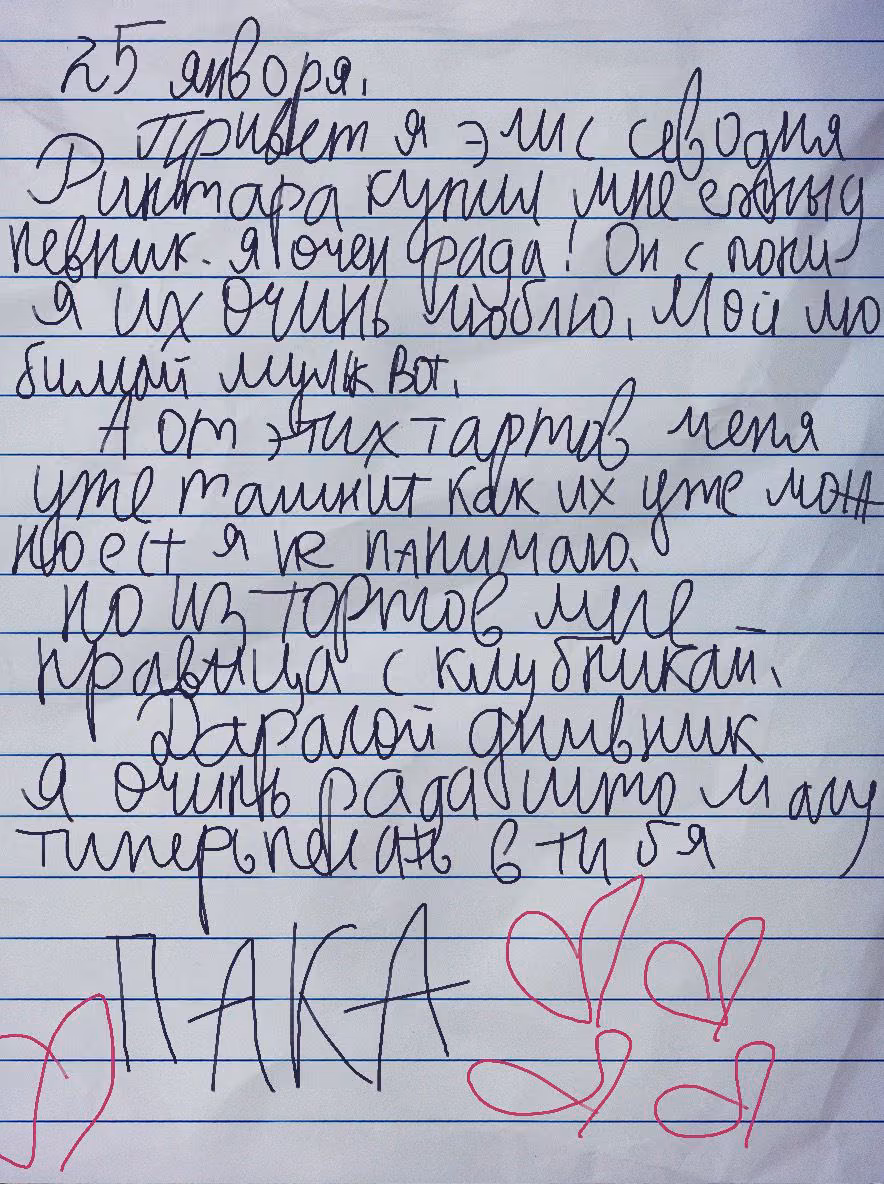 25 января.
Привет я элис севодня
Ринтара купил мне ежныд
невник. я очен рада! Он с пони
я их очинь люблю. Мой лю
бимай мульк вот.
А от этих тартов меня
уже ташнит как их уже мож
но ест я не панимаю.
но из тортов мне
нравица с клубникай.
Дарагой дниивник
я очинь рада што магу
типерь писать в тибя
ПАКА